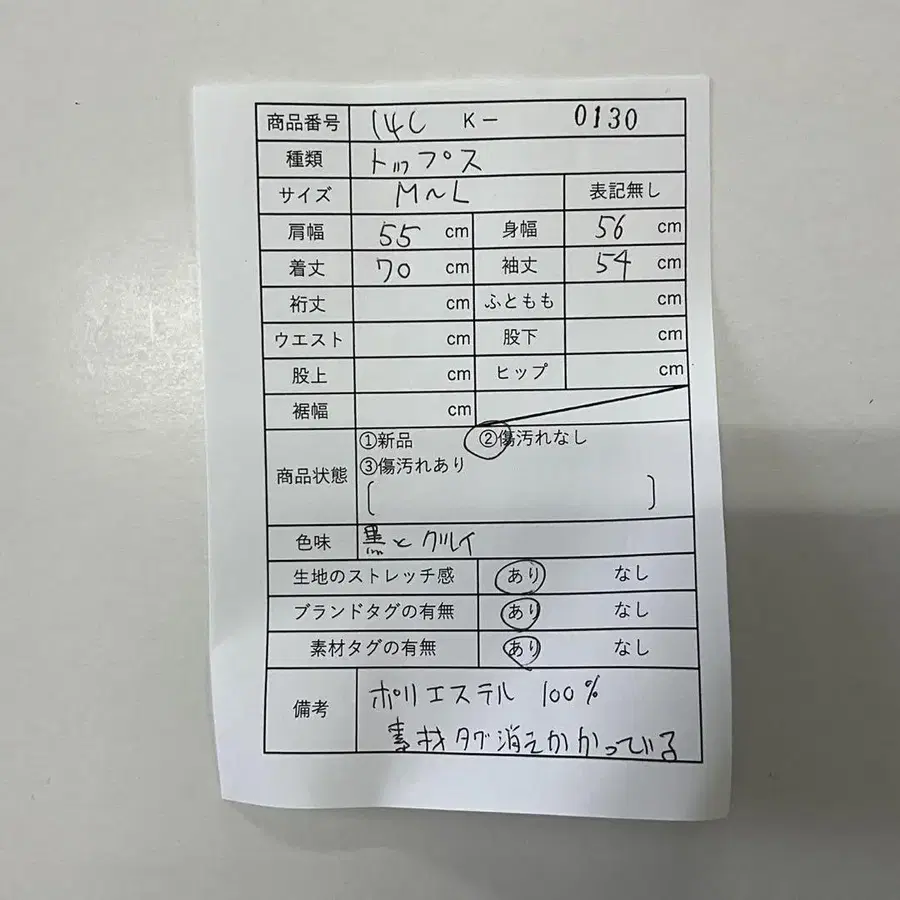 商品番号 14C K- 0130
種類 トップス
サイズ M~L 表記無し
肩幅 55 cm 身幅 56 cm
着丈 70 cm 袖丈 54 cm
裄丈 cm ふともも cm
ウエスト cm 股下 cm
股上 cm ヒップ cm
裾幅 cm
商品状態 ①新品 ②傷汚れなし
③傷汚れあり
[ ]
色味 黒とグレイ
生地のストレッチ感 あり なし
ブランドタグの有無 あり なし
素材タグの有無 あり なし
備考 ポリエステル 100%
素材タグ消えかかっている